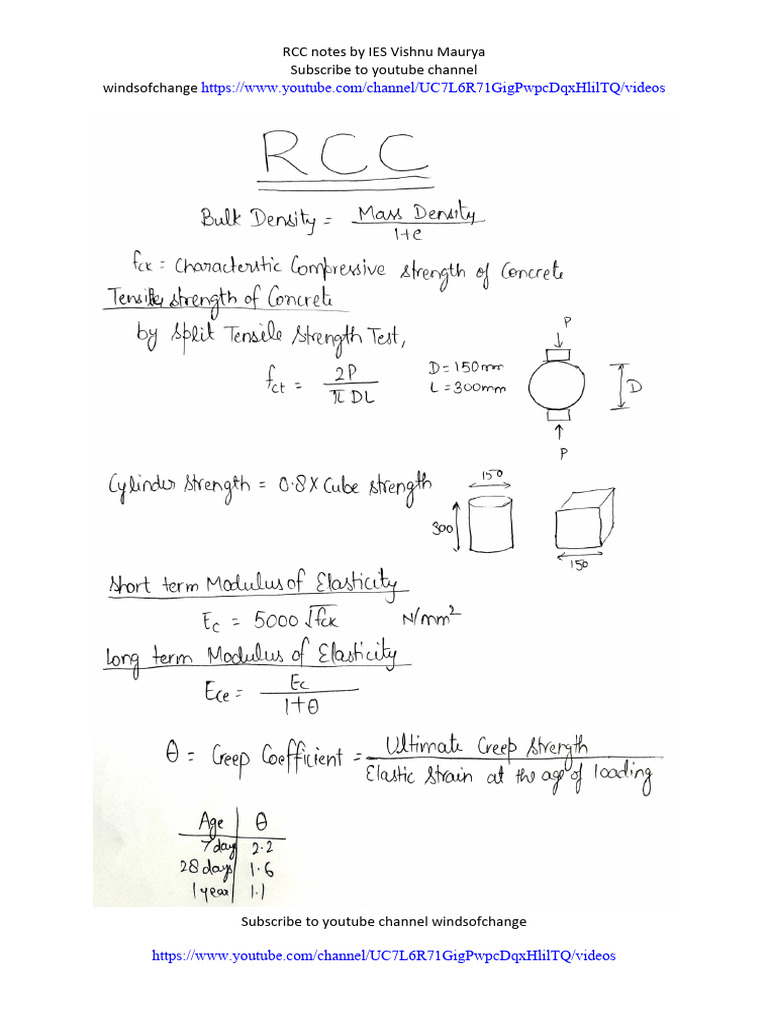 RCC notes by IES Vishnu Maurya
Subscribe to youtube channel
windsofchange https://www.youtube.com/channel/UC7L6R71GigPwpcDqxHlilTQ/videos
RCC
Bulk Density = Mass Density / 1+e
fck = Characterstic Compressive Strength of Concrete
Tensile strength of Concrete
by Split Tensile Strength Test,
fct = 2P / π DL
D = 150mm
L = 300mm
P
D
P
Cylinder Strength = 0.8 X Cube Strength
150
300
150
Short term Modulus of Elasticity
Ec = 5000 √fck N/mm²
Long term Modulus of Elasticity
Ece = Ec / 1+θ
θ = Creep Coefficient = Ultimate Creep Strength / Elastic Strain at the age of loading
Age θ
7day 2.2
28 days 1.6
1 year 1.1
Subscribe to youtube channel windsofchange
https://www.youtube.com/channel/UC7L6R71GigPwpcDqxHlilTQ/videos